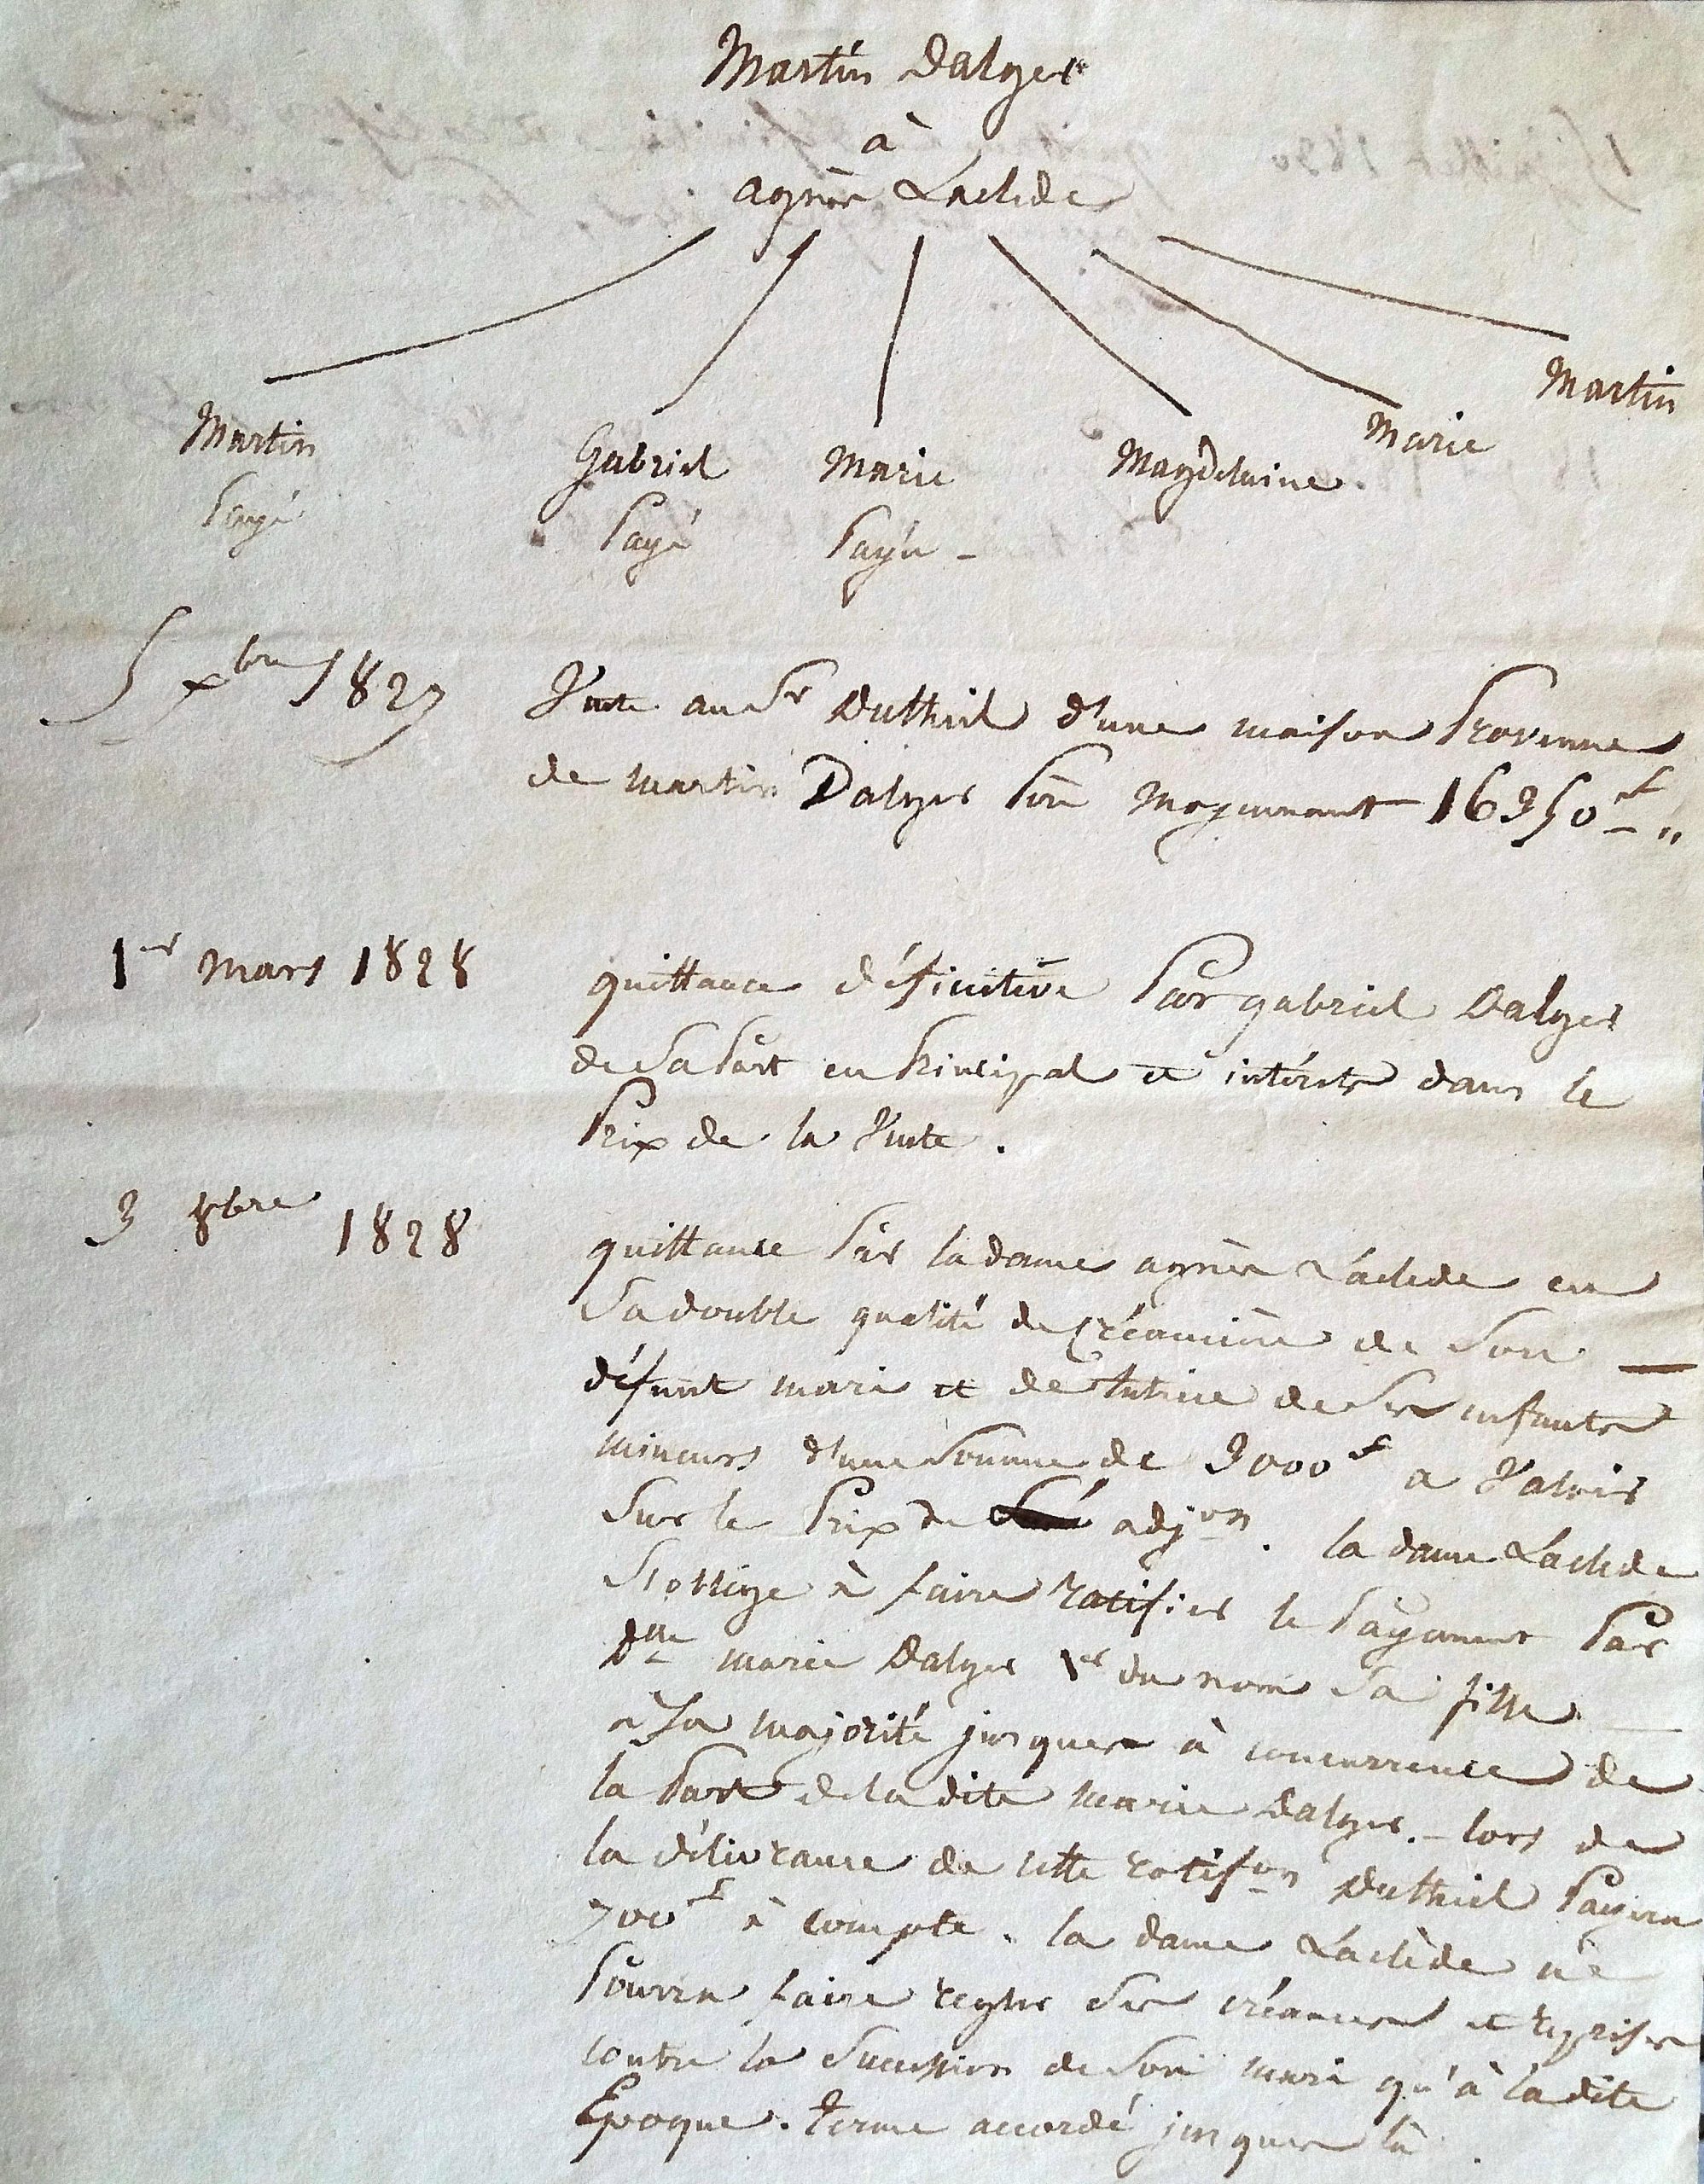 Martin Dalger
à
agnès Laclede
Martin Gabriel Marie Magdelaine Marie Martin
Payé Payé Payée -
5 xbre 1827 Vente au Sr Dutheil d'une maison Provenue
de martin Dalger Père moyennant 16350 f "
1er mars 1828 quittance définitive Par gabriel Dalger
de Sa Part en Principal et intérêts dans le
Prix de la Vente.
3 8bre 1828 quittance Par la dame agnès Laclede en
Sa double qualité de Créancière de Son
défunt mari et de tutrice de Ses enfants
mineurs d'une Somme de 3000 f a Valoir
Sur le Prix de adjon. la dame Laclede
S'oblige à faire ratifier le Payement Par
Dlle marie Dalger 1re du nom Sa fille
a Sa majorité jusques à concurrence de
la Part de la dite marie Dalger. - lors de
la délivrance de cette ratifon Dutheil Payera
700 f à compte. la dame Laclède ne
Pourra faire regler Ses créances et reprises
contre la Succession de Son mari qu'à la dite
Epoque. terme accordé jusques là.